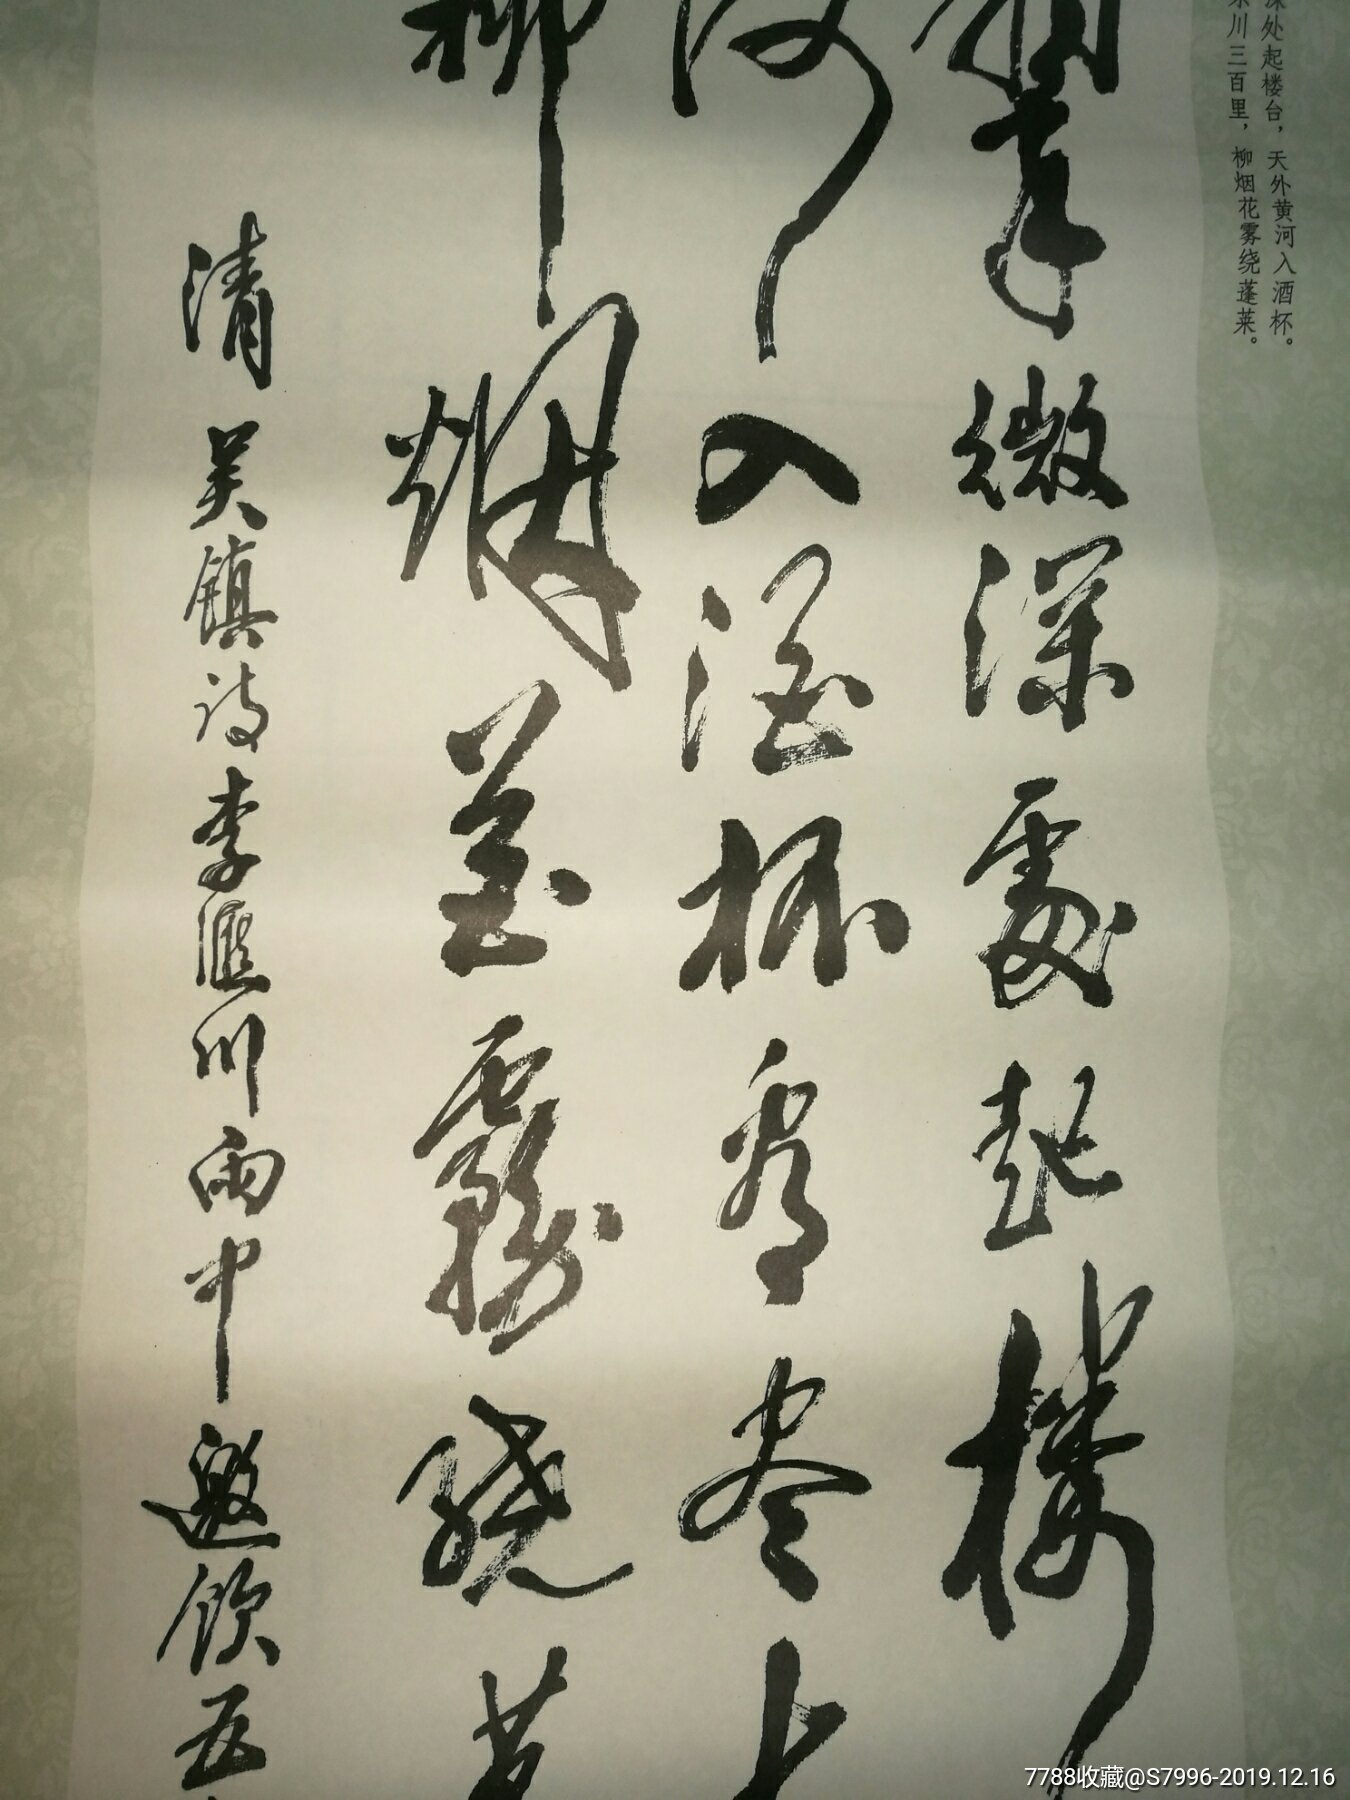 深处起楼台，天外黄河入酒杯。
川三百里，柳烟花雾绕蓬莱。
翠微深處起楼
河入酒杯看尽上
柳烟花霧繞
清吴镇诗李滙川雨中邀飲五
7788收藏@S7996-2019.12.16